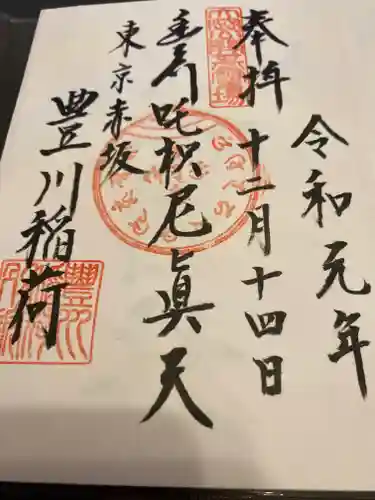 令和元年
奉拝 十二月十四日
吒枳尼眞天
東京赤坂
豊川稲荷